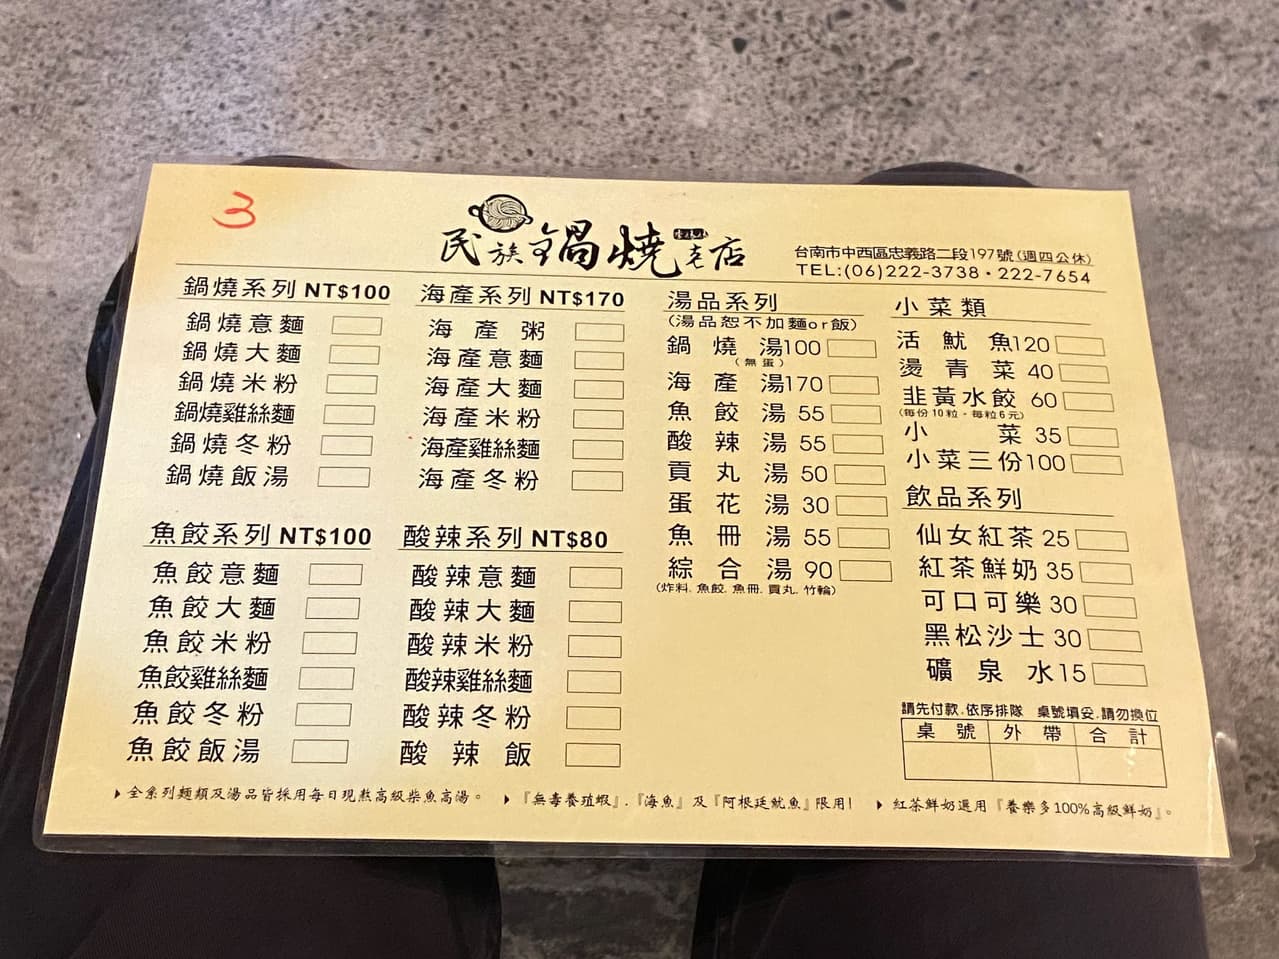 3
民族鍋燒老店
台南市中西區忠義路二段197號(週四公休)
TEL:(06)222-3738・222-7654
鍋燒系列 NT$100
鍋燒意麵
鍋燒大麵
鍋燒米粉
鍋燒雞絲麵
鍋燒冬粉
鍋燒飯湯
魚餃系列 NT$100
魚餃意麵
魚餃大麵
魚餃米粉
魚餃雞絲麵
魚餃冬粉
魚餃飯湯
海產系列 NT$170
海產粥
海產意麵
海產大麵
海產米粉
海產雞絲麵
海產冬粉
酸辣系列 NT$80
酸辣意麵
酸辣大麵
酸辣米粉
酸辣雞絲麵
酸辣冬粉
酸辣飯
湯品系列
(湯品恕不加麵or飯)
鍋燒湯100
(無蛋)
海產湯170
魚餃湯 55
酸辣湯 55
貢丸湯 50
蛋花湯 30
魚冊湯 55
綜合湯 90
(炸料.魚餃.魚冊.貢丸.竹輪)
小菜類
活魷魚120
燙青菜 40
韭黃水餃 60
(每份10粒,每粒6元)
小菜 35
小菜三份100
飲品系列
仙女紅茶 25
紅茶鮮奶 35
可口可樂 30
黑松沙士 30
礦泉水15
請先付款.依序排隊 桌號填妥.請勿換位
桌號 外帶 合計
▸全系列麵類及湯品皆採用每日現熬高級柴魚高湯。 ▸『無毒養殖蝦』.『海魚』及『阿根廷魷魚』限用! ▸紅茶鮮奶選用『養樂多100%高級鮮奶』。